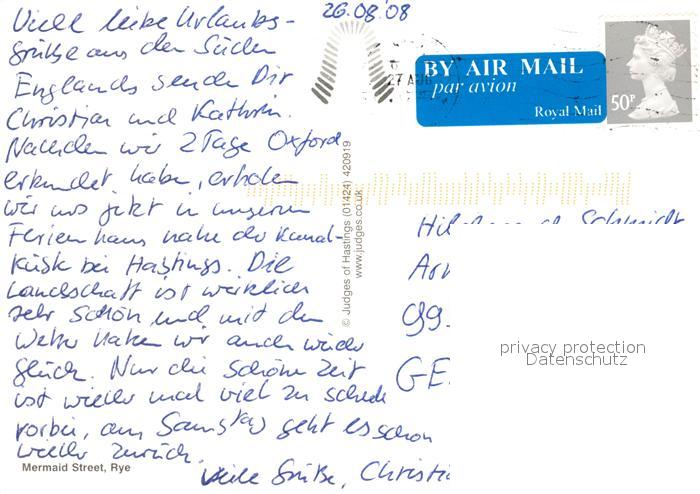 26.08.'08
Viele liebe Urlaubs-
grüße aus dem Süden
Englands senden Dir
Christian und Kathrin.
Nachdem wir 2 Tage Oxford
erkundet haben, erholen
wir uns jetzt in unserem
Ferienhaus nahe der Kanal-
küste bei Hastings. Die
Landschaft ist wirklich
sehr schön und mit dem
Wetter haben wir auch wieder
Glück. Nur die schöne Zeit
ist wieder mal viel zu schnell
vorbei, am Samstag geht es schon
wieder zurück.
Viele Grüße, Christi
Mermaid Street, Rye
© Judges of Hastings (01424) 420919
www.judges.co.uk
27 AUG
BY AIR MAIL
par avion
Royal Mail
50P
Schmidt
99.
GE
privacy protection
Datenschutz